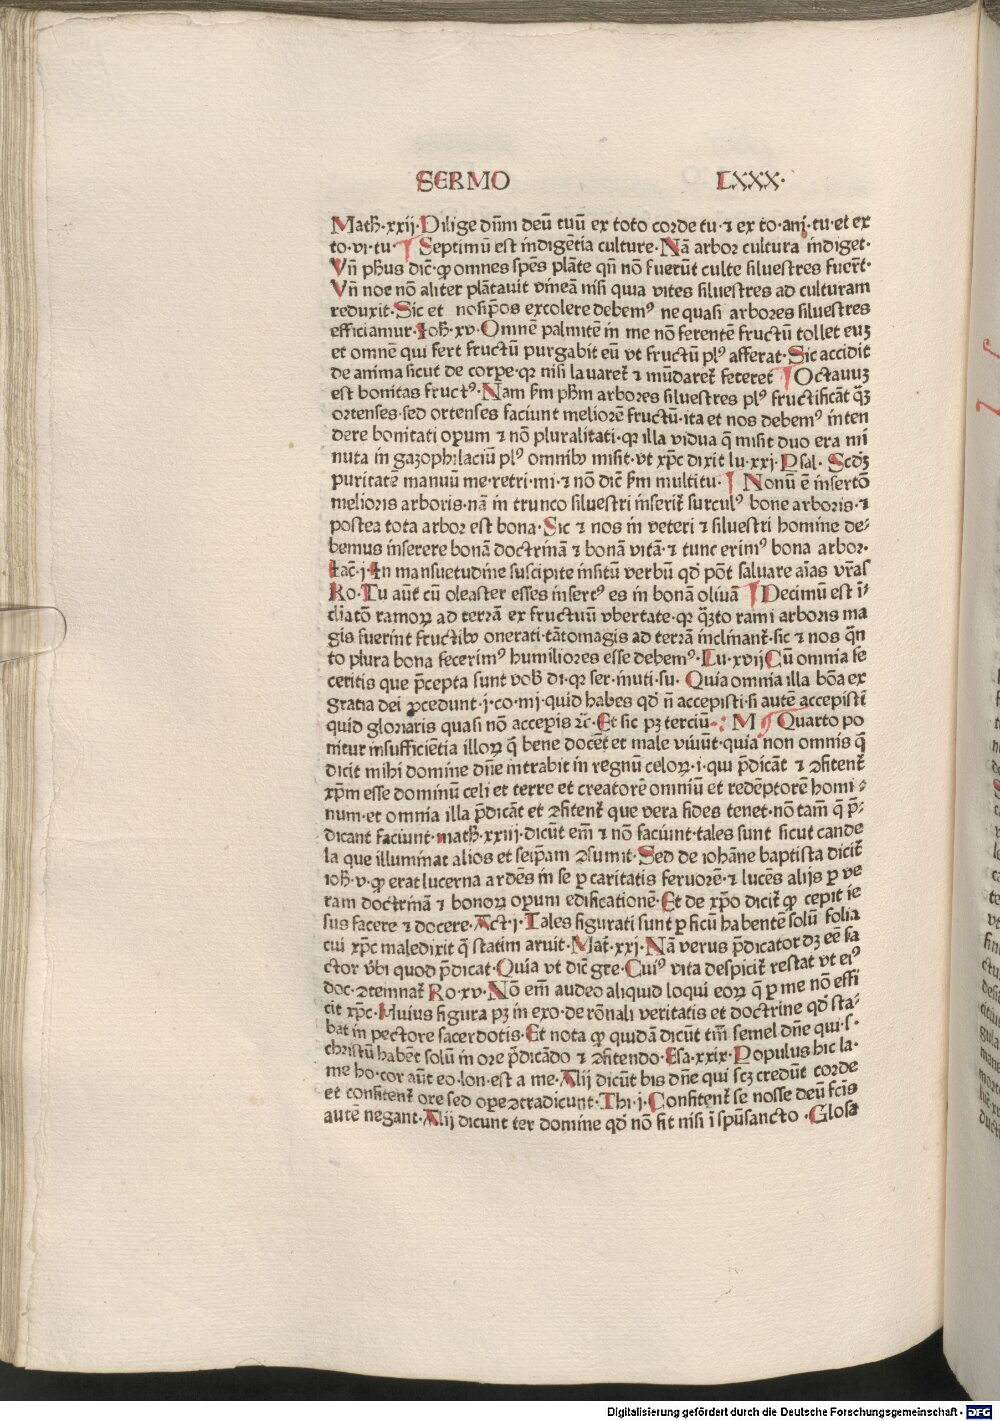 SERMO LXXX·
Math̄·xxij·Dilige dn̄m deū tuū ex toto corde tu·⁊ ex to·anj·tu·et ex
to·vi·tu·¶ Septimū est indigētia culture·Nā arbor cultura indiget·
Vn̄ ph̄us dic̄·ꝙ omnes spēs plāte qn̄ nō fuerūt culte siluestres fuer̄t·
Vn̄ noe nō aliter plātauit vineā nisi quia vites siluestres ad culturam
reduxit·Sic et nosip̄os excolere debemꝰ ne quasi arbores siluestres
efficiamur·Ioh̄·xv·Omnē palmitē in me nō ferentē fructū tollet euꝫ
et omnē qui fert fructū purgabit eū vt fructū plꝰ afferat·Sic accidit
de anima sicut de corpe·qꝛ nisi lauaret̄ ⁊ mūdaret̄ feteret ¶ Octauuꝫ
est bonitas fructꝰ·Nam s̄m ph̄m arbores siluestres plꝰ fructificāt qꝫ̄
ortenses·sed ortenses faciunt meliorē fructū·ita et nos debemꝰ inten
dere bonitati opum ⁊ nō pluralitati·qꝛ illa vidua q̄ misit duo era mi
nuta in gazophilaciū plꝰ omnibꝰ misit·vt xp̄c dixit lu·xxj·Psal·Scd̄ꝫ
puritatē manuū me·retri·mi·⁊ nō dic̄ s̄m multitu·¶ Nonū ē insertō
melioris arboris·nā in trunco siluestri inserit̄ surculꝰ bone arboris·⁊
postea tota arbor est bona·Sic ⁊ nos in veteri ⁊ siluestri homine de⸗
bemus inserere bonā doctrinā ⁊ bonā vitā·⁊ tunc erimꝰ bona arbor·
Iac̄·j·In mansuetudine suscipite insitū verbū qd̄ pōt saluare aīas vr̄as
Ro·Tu aūt cū oleaster esses insertꝰ es in bonā oliuā ¶ Decimū est ī⸗
cliatō ramoꝝ ad terrā ex fructuū vbertate·qꝛ qꝫ̄to rami arboris ma
gis fuerint fructibꝰ onerati·tātomagis ad terrā inclinant̄·sic ⁊ nos qn̄
to plura bona fecerimꝰ humiliores esse debemꝰ·Lu·xvij Cū omnia fe
ceritis que p̄cepta sunt vob̄ di·qꝛ ser·inuti·su· Quia omnia illa bōa ex
gratia dei ꝓcedunt·j·co·iiij·quid habes qd̄ n̄ accepisti·si autē accepisti
quid gloriaris quasi nō acceperis ⁊c̄·Et sic pꝫ terciū·: M ¶ Quarto po
nitur insufficiētia illoꝝ q̄ bene docēt et male viuūt·quia non omnis q̄
dicit mihi domine dn̄e intrabit in regnū celoꝝ·i·qui p̄dicāt ⁊ ꝯfitent̄
xp̄m esse dominū celi et terre et creatorē omniū et redēptorē homi⸗
num·et omnia illa p̄dicāt et ꝯfitent̄ que vera fides tenet·nō tam̄ q̄ p̄⸗
dicant faciunt·math̄·xxiij·dicūt em̄ ⁊ nō faciunt·tales sunt sicut cande
la que illuminat alios et seip̄am ꝯsumit·Sed de iohāne baptista dicit̄
ioh̄·v·ꝙ erat lucerna ardēs in se ꝑ caritatis feruorē·⁊ lucēs alijs ꝑ ve
ram doctrinā ⁊ bonoꝝ opum edificationē·Et de xp̄o dicit̄ ꝙ cepit ie
sus facere ⁊ docere·Act·j·Tales figurati sunt ꝑ ficū habentē solū folia
cui xp̄c maledixit q̄ statim aruit·Mat̄·xxj·Nā verus p̄dicator dꝫ eē fa
ctor v̄bi quod p̄dicat·Quia vt dic̄ gre·Cuiꝰ vita despicit̄ restat vt eiꝰ
doc·ꝯtemnat̄ Ro·xv·Nō em̄ audeo aliquid loqui eoꝝ q̄ ꝑ me nō effi
cit xp̄c·Huius figura pꝫ in exo·de rōnali veritatis et doctrine qd̄ sta⸗
bat in pectore sacerdotis·Et nota ꝙ quidā dicūt tm̄ semel dn̄e qui·s·
christū habēt solū in ore p̄dicādo ⁊ ꝯfitendo·Esa·xxix·Populus hic la·
me ho·cor aūt eo·lon·est a me·Alij dicūt bis dn̄e qui scꝫ credūt corde
et confitent̄ ore sed ope ꝯtradicunt·Thi·j·Confitent̄ se nosse deū fc̄is
autē negant·Alij dicunt ter domine qd̄ nō fit nisi ī spūsancto·Glosa
Digitalisierung gefördert durch die Deutsche Forschungsgemeinschaft - DFG